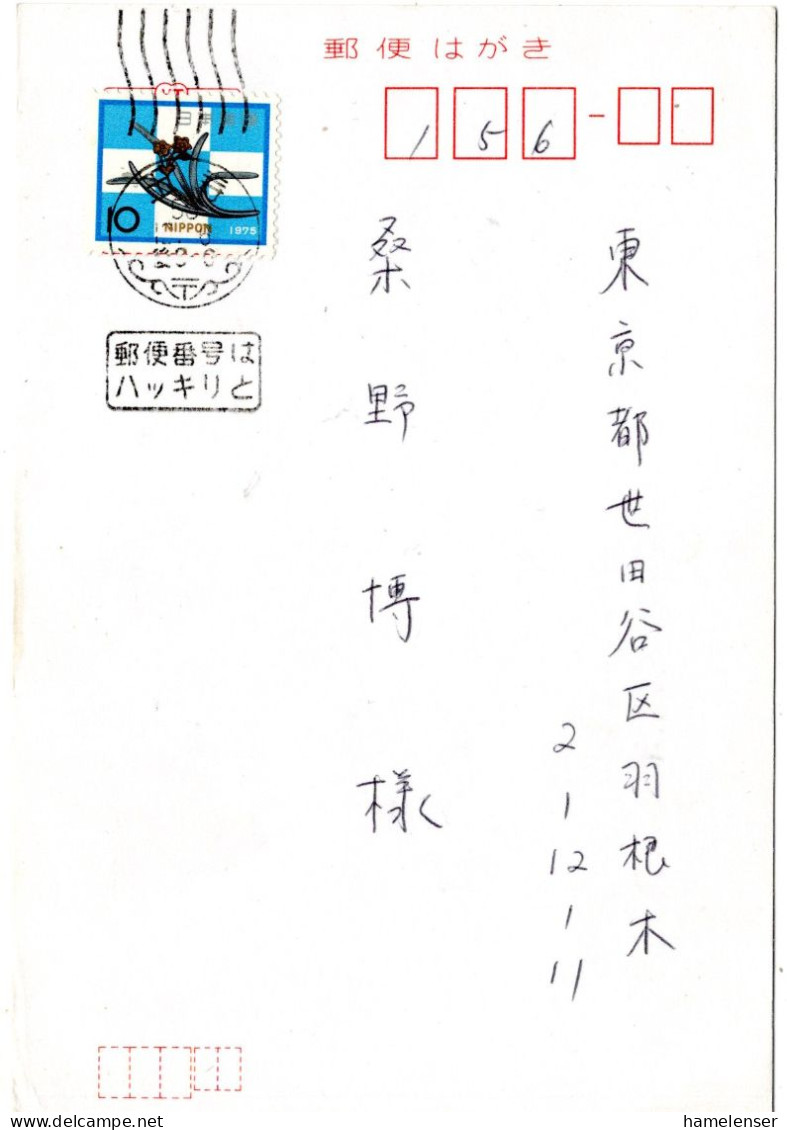 郵便はがき
156
日本郵便
10
NIPPON
1975
郵便番号は
ハッキリと
東京都世田谷区羽根木
2-1-12-1-11
桑野博様
hamelenser